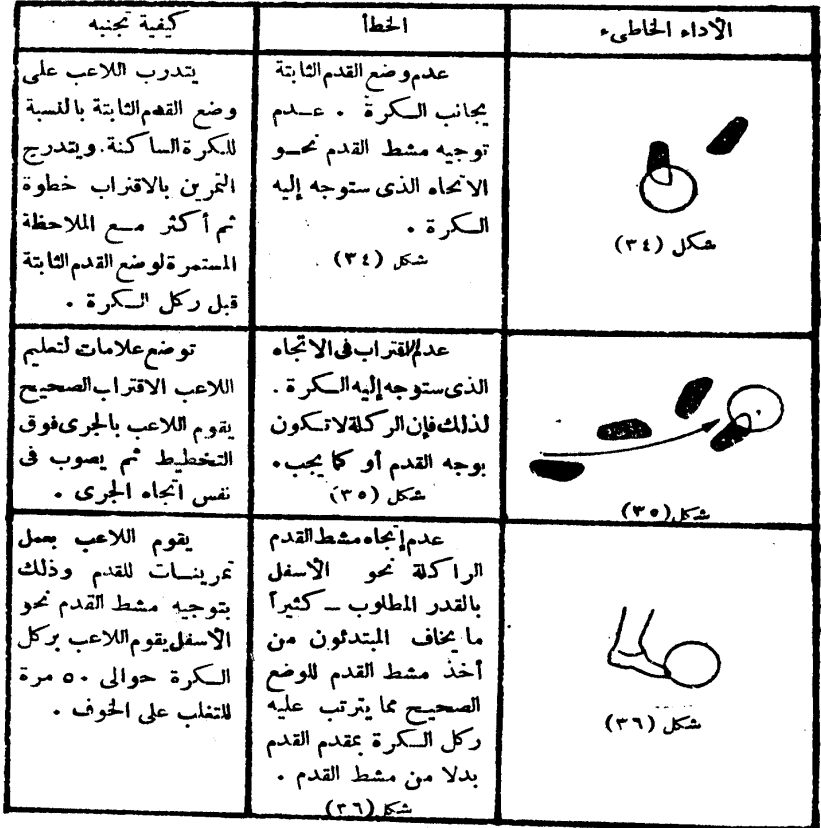 الأداء الخاطىء
الخطأ
كيفية تجنبه
شكل (٣٤)
عدم وضع القدم الثابتة
بجانب الكرة . عدم
توجيه مشط القدم نحو
الاتجاه الذى ستوجه إليه
الكرة .
شكل (٣٤)
يتدرب اللاعب على
وضع القدم الثابتة بالنسبة
للكرة الساكنة. ويتدرج
التمرين بالاقتراب خطوة
ثم أكثر مع الملاحظة
المستمرة لوضع القدم الثابتة
قبل ركل الكرة .
شكل (٣٥)
عدم الاقتراب فى الاتجاه
الذى ستوجه إليه الكرة .
لذلك فإن الركلة لا تكون
بوجه القدم أو كما يجب .
شكل (٣٥)
توضع علامات لتعليم
اللاعب الاقتراب الصحيح
يقوم اللاعب بالجرى فوق
التخطيط ثم يصوب فى
نفس اتجاه الجرى .
شكل (٣٦)
عدم إتجاه مشط القدم
الراكلة نحو الأسفل
بالقدر المطلوب ــ كثيراً
ما يخاف المبتدئون من
أخذ مشط القدم للوضع
الصحيح مما يترتب عليه
ركل الكرة بمقدم القدم
بدلا من مشط القدم .
شكل (٣٦)
يقوم اللاعب بعمل
تمرينات للقدم وذلك
بتوجيه مشط القدم نحو
الأسفل يقوم اللاعب بركل
الكرة حوالى ٥٠ مرة
للتغلب على الخوف .